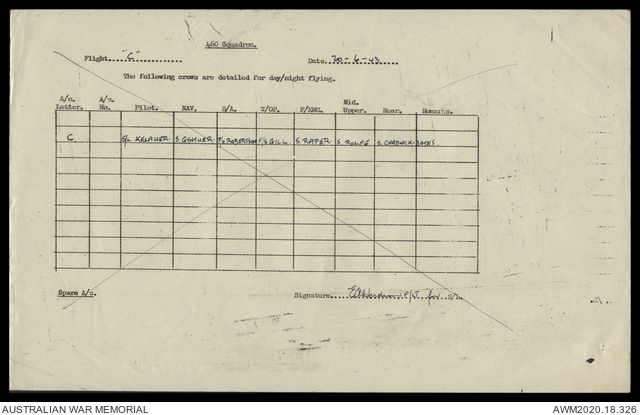 460 Squadron.
Flight "C" Date 20-6-43
The following crews are detailed for day/night flying.
A/c. Letter. A/c. No. Pilot. NAV. B/A. W/OP. F/ENG. Mid. Upper. Rear. Remarks.
C S/L KELAHER S. GYNTHER F/S ROBERTSON F/S GILL S. RAPER S. ROLFE S. CHADWICK-BATES.
Spare A/c. Signature S/L.
AUSTRALIAN WAR MEMORIAL AWM2020.18.326